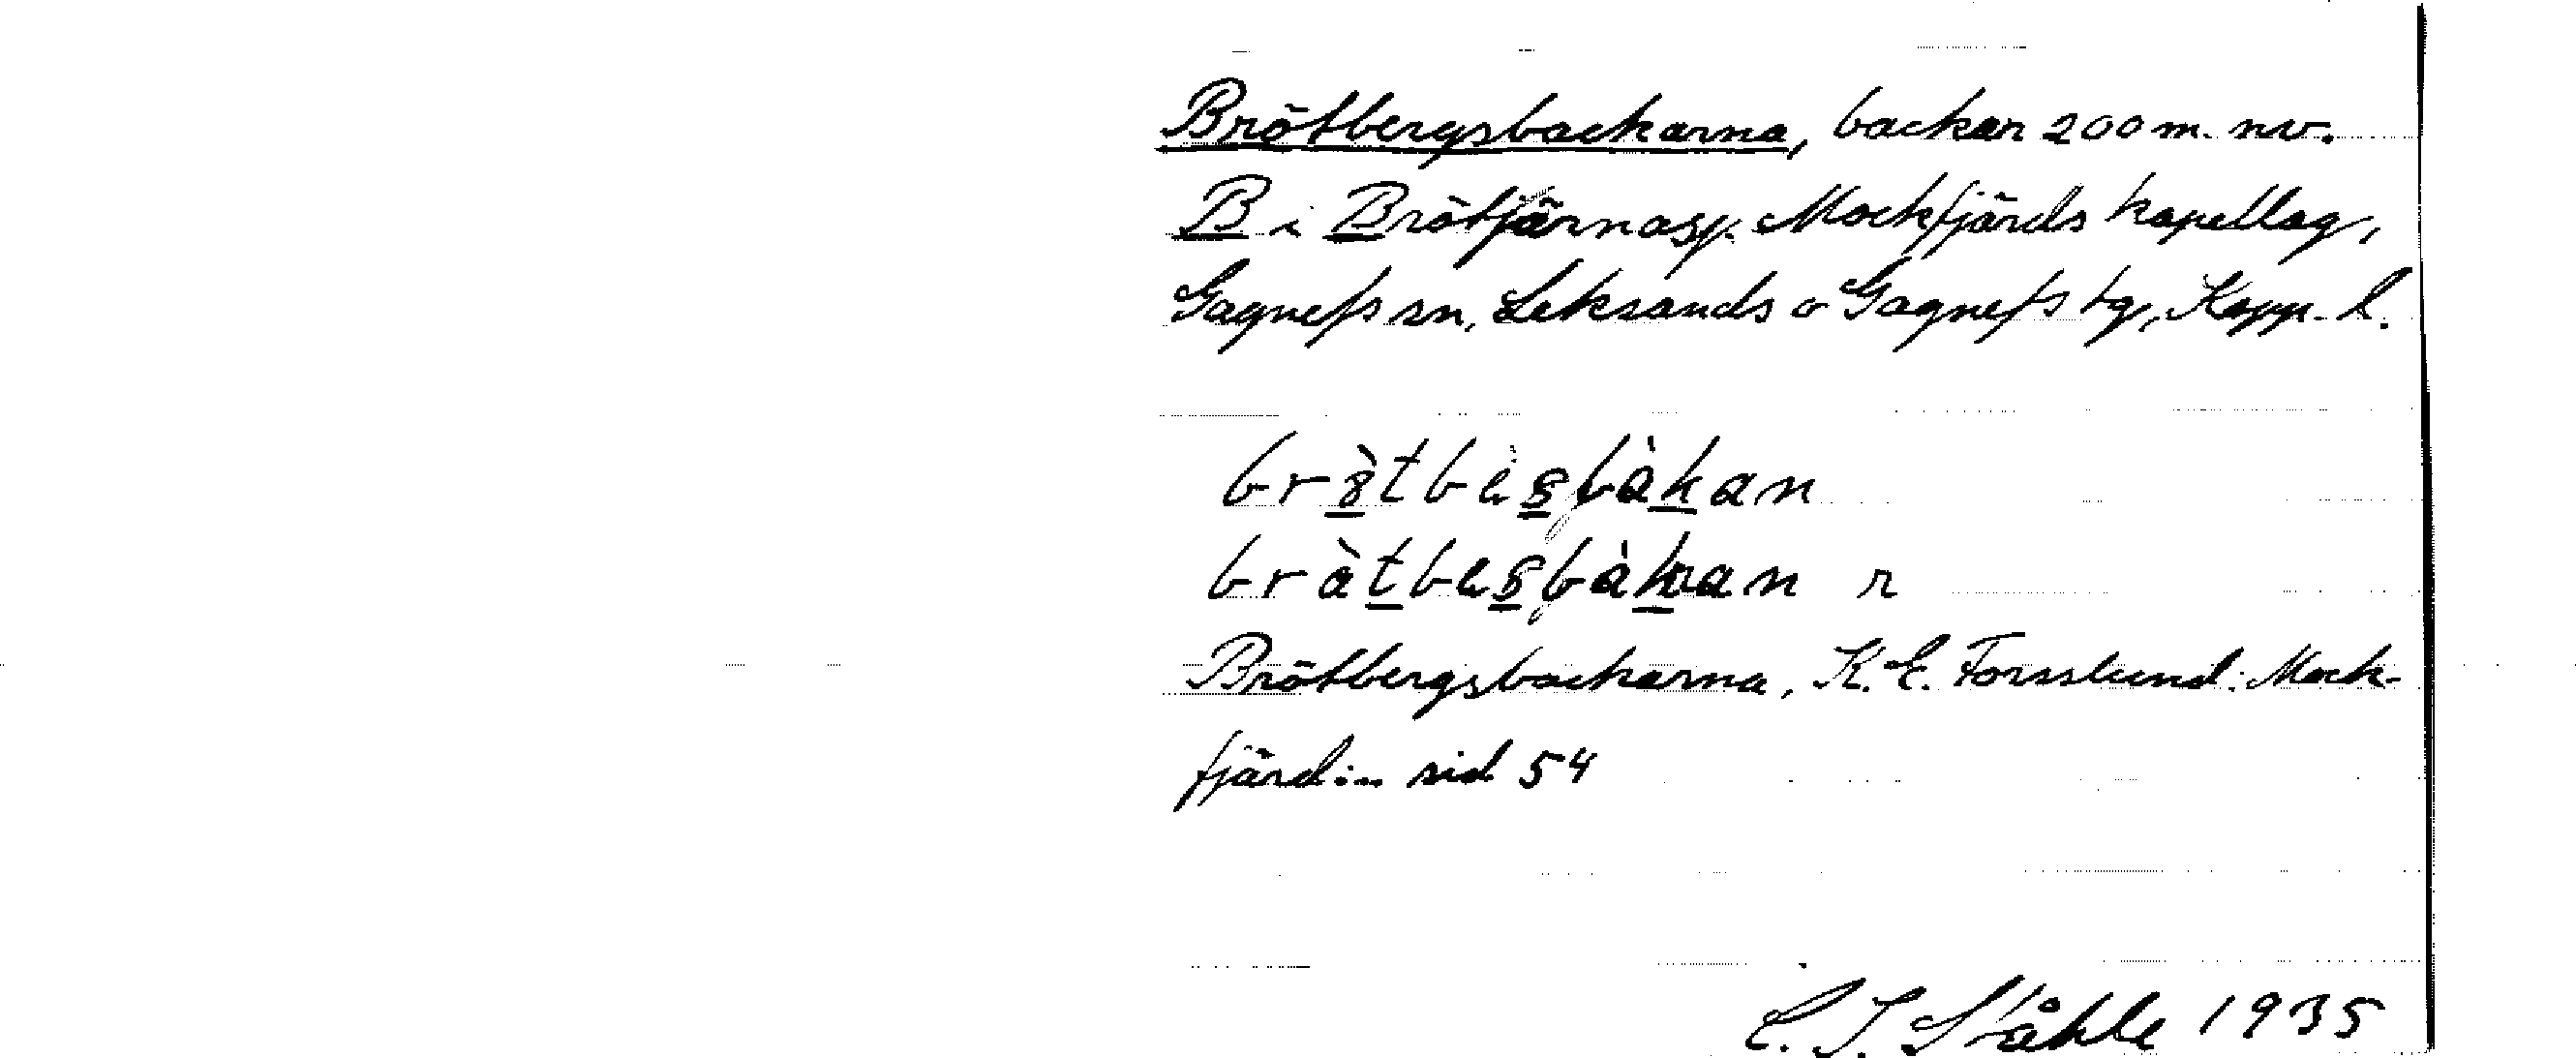 Brötbergsbackarna, backar 200 m. nv.
B i Brötjärnasp. Mockfjärds kapellag,
Gagnefs sn, Leksands o Gagnefs tg, Kopp. l.
Brötbergsbackarna, K. E. Forsslund: Mock-
fjärd:- sid 54
C. I. Ståhle 1935